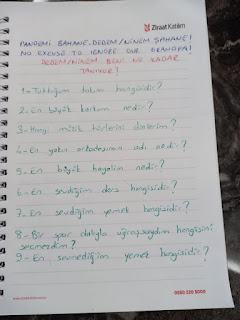 Ziraat Katılım
PANDEMİ BAHANE, DEDEM/NİNEM ŞAHANE!
NO EXCUSE TO IGNORE OUR GRANDPA!
DEDEM/NİNEM BENİ NE KADAR
TANIYOR?
1-Tuttuğum takım hangisidir?
2-En büyük korkum nedir?
3-Hangi müzik türlerini dinlerim?
4-En yakın arkadaşımın adı nedir?
5-En büyük hayalim nedir?
6-En sevdiğim ders hangisidir?
7-En sevdiğim yemek hangisidir?
8-Bir spor dalıyla uğraşsaydım hangisini
seçerdim?
9-En sevmediğim yemek hangisidir?
0850 220 5000